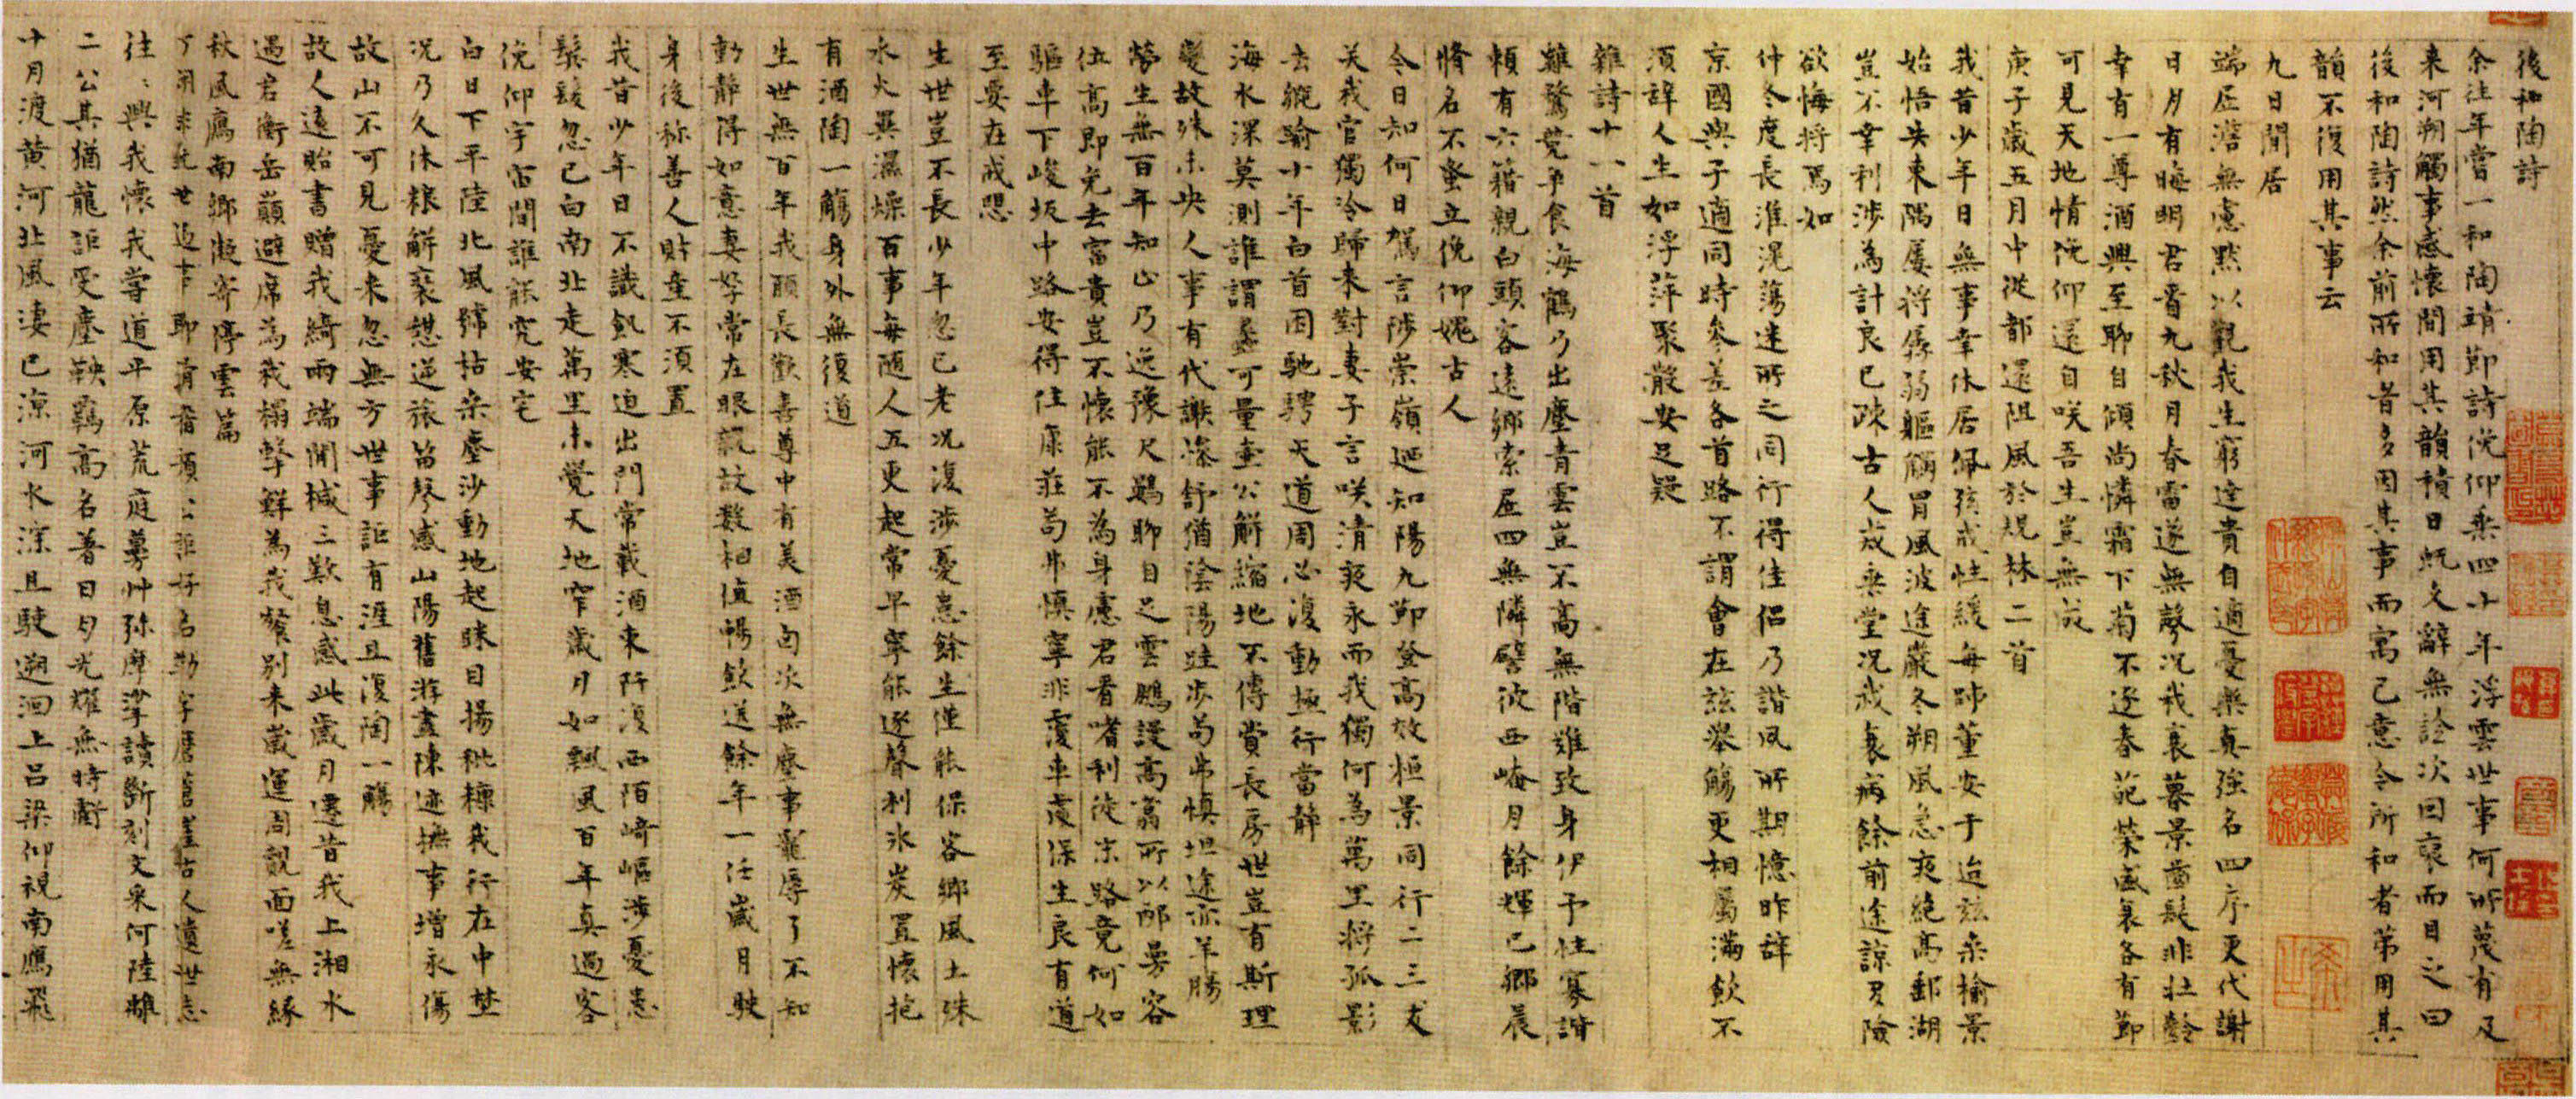 後和陶詩
余往年嘗一和陶靖節詩俛仰乘四十年浮雲世事何所蔑有及
来河朔觸事感懷間用其韻積日既久辭無詮次因裒而目之曰
後和陶詩然余前所和者多因其事而寓己意今所和者第用其
韻不復用其事云
九日閒居
端居澹無慮默以觀我生窮達貴自適憂樂真強名四序更代謝
日月有晦明君看九秋月春雷遂無聲况我衰暮景齒髮非壯齡
幸有一尊酒興至聊自傾尚憐霜下菊不逐春葩榮盛衰各有節
可見天地情俛仰還自咲吾生豈無成
庚子歲五月中從都還阻風於規林二首
我昔少年日無事幸休居佩弦戒性緩每師董安于迨兹桑榆景
始悟失東隅屢将孱弱軀觸冒風波途嚴冬朔風急夜絶高郵湖
豈不幸利涉為計良已疎古人戒垂堂况我衰病餘前途諒多險
欲悔将焉如
仲冬度長淮滉蕩迷所之同行得佳侣乃諧夙所期憶昨辭
京國與子適同時參差各首路不謂會在兹舉觴更相屬滿飲不
須辭人生如浮萍聚散安足疑
雜詩十一首
雞鶩競争食海鶴乃出塵青雲豈不高無階難致身伊予性寡諧
頼有六籍親白頭客遠鄉索居四無隣譬彼西崦月餘輝已鄉晨
脩名不蚤立俛仰媿古人
今日知何日駕言陟崇嶺廼知陽九節登高效桓景同行二三友
关我官獨冷歸来對妻子言咲清夜永而我獨何為萬里将孤影
去縱踰十年白首困馳騁天道周必復動極行當靜
海水深莫測誰謂蠡可量壷公解縮地不傳賞長房世豈有斯理
變故殊未央人事有代謝滌舒循陰陽跬步苟弗慎坦途亦羊腸
勞生無百年知止乃逸豫尺鷃聊自足雲鵬謾高翥所以邴曼容
位高即免去富貴豈不懷能不為身慮君看嗜利徒末路竟何如
驅車下峻坂中路安得住康莊苟弗慎寧非覆車處保生良有道
至要在戒懼
生世豈不長少年忽已老况復涉憂患餘生僅能保客鄉風土殊
水火異濕燥百事每随人五更起常早寧能逐聲利氷炭置懷抱
有酒陶一觴身外無復道
生世無百年我願長歡喜尊中有美酒自次無塵事寵辱了不知
動静得如意妻孥常在眼親故數相值暢飲送餘年一任歲月駛
身後称善人貯壷不須置
我昔少年日不識飢寒迫出門常載酒東阡復西陌崎嶇涉憂患
鬓髮忽已白南北走萬里未覺天地窄歲月如飄風百年真過客
俛仰宇宙間誰能究安宅
白日下平陸北風猗枯桒塵沙動地起眯目揚粃糠我行在中埜
况乃久休粮解裘憇逆旅笛聲感山陽舊游盡陳迹撫事增永傷
故山不可見憂来忽無方世事詎有涯且復陶一觴
故人遠貽書贈我綺兩端開械三歎息感此歲月遷昔我上湘水
過君衡岳巔避席為我榻擊鮮為我餐别来歲運周覿面嗟無緣
秋風鴈南鄉凝寄停雲篇
往々興我懷我嘗道平原荒庭蓦艸弥摩挲讀斷刻文采何陸離
二公其猶龍詎受塵鞅羈高名著日月光耀無時虧
十月渡黄河北風淒已涼河水深且駛遡洄上呂梁仰視南鴈飛